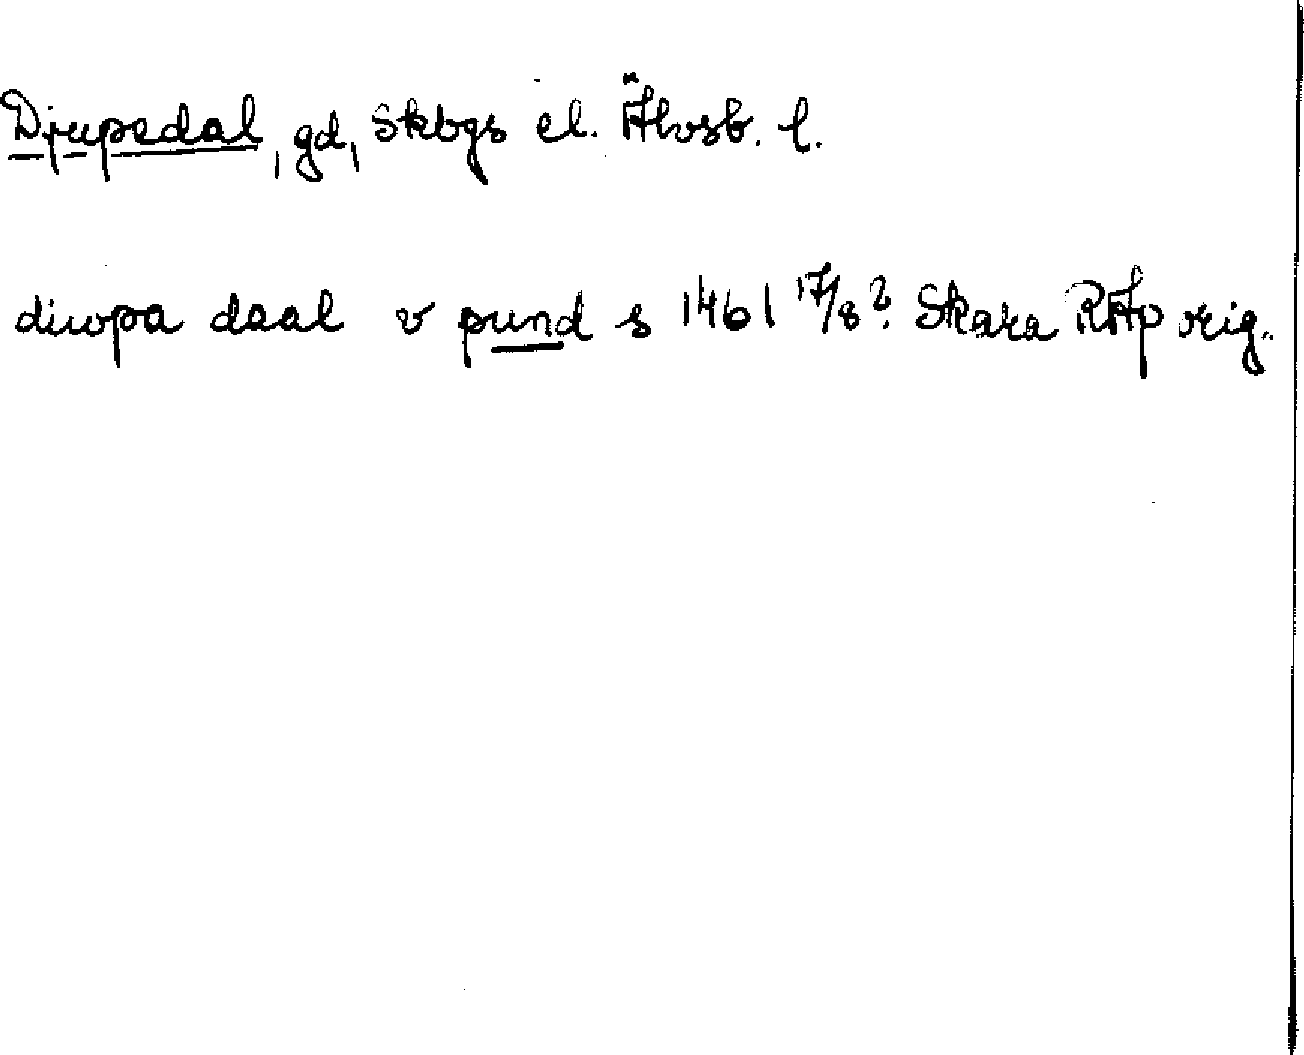 Djupedal, gd, Skbgs el. Älvsb. l.
diwpa daal v pund s 1461 17/8? Skara RAp orig.